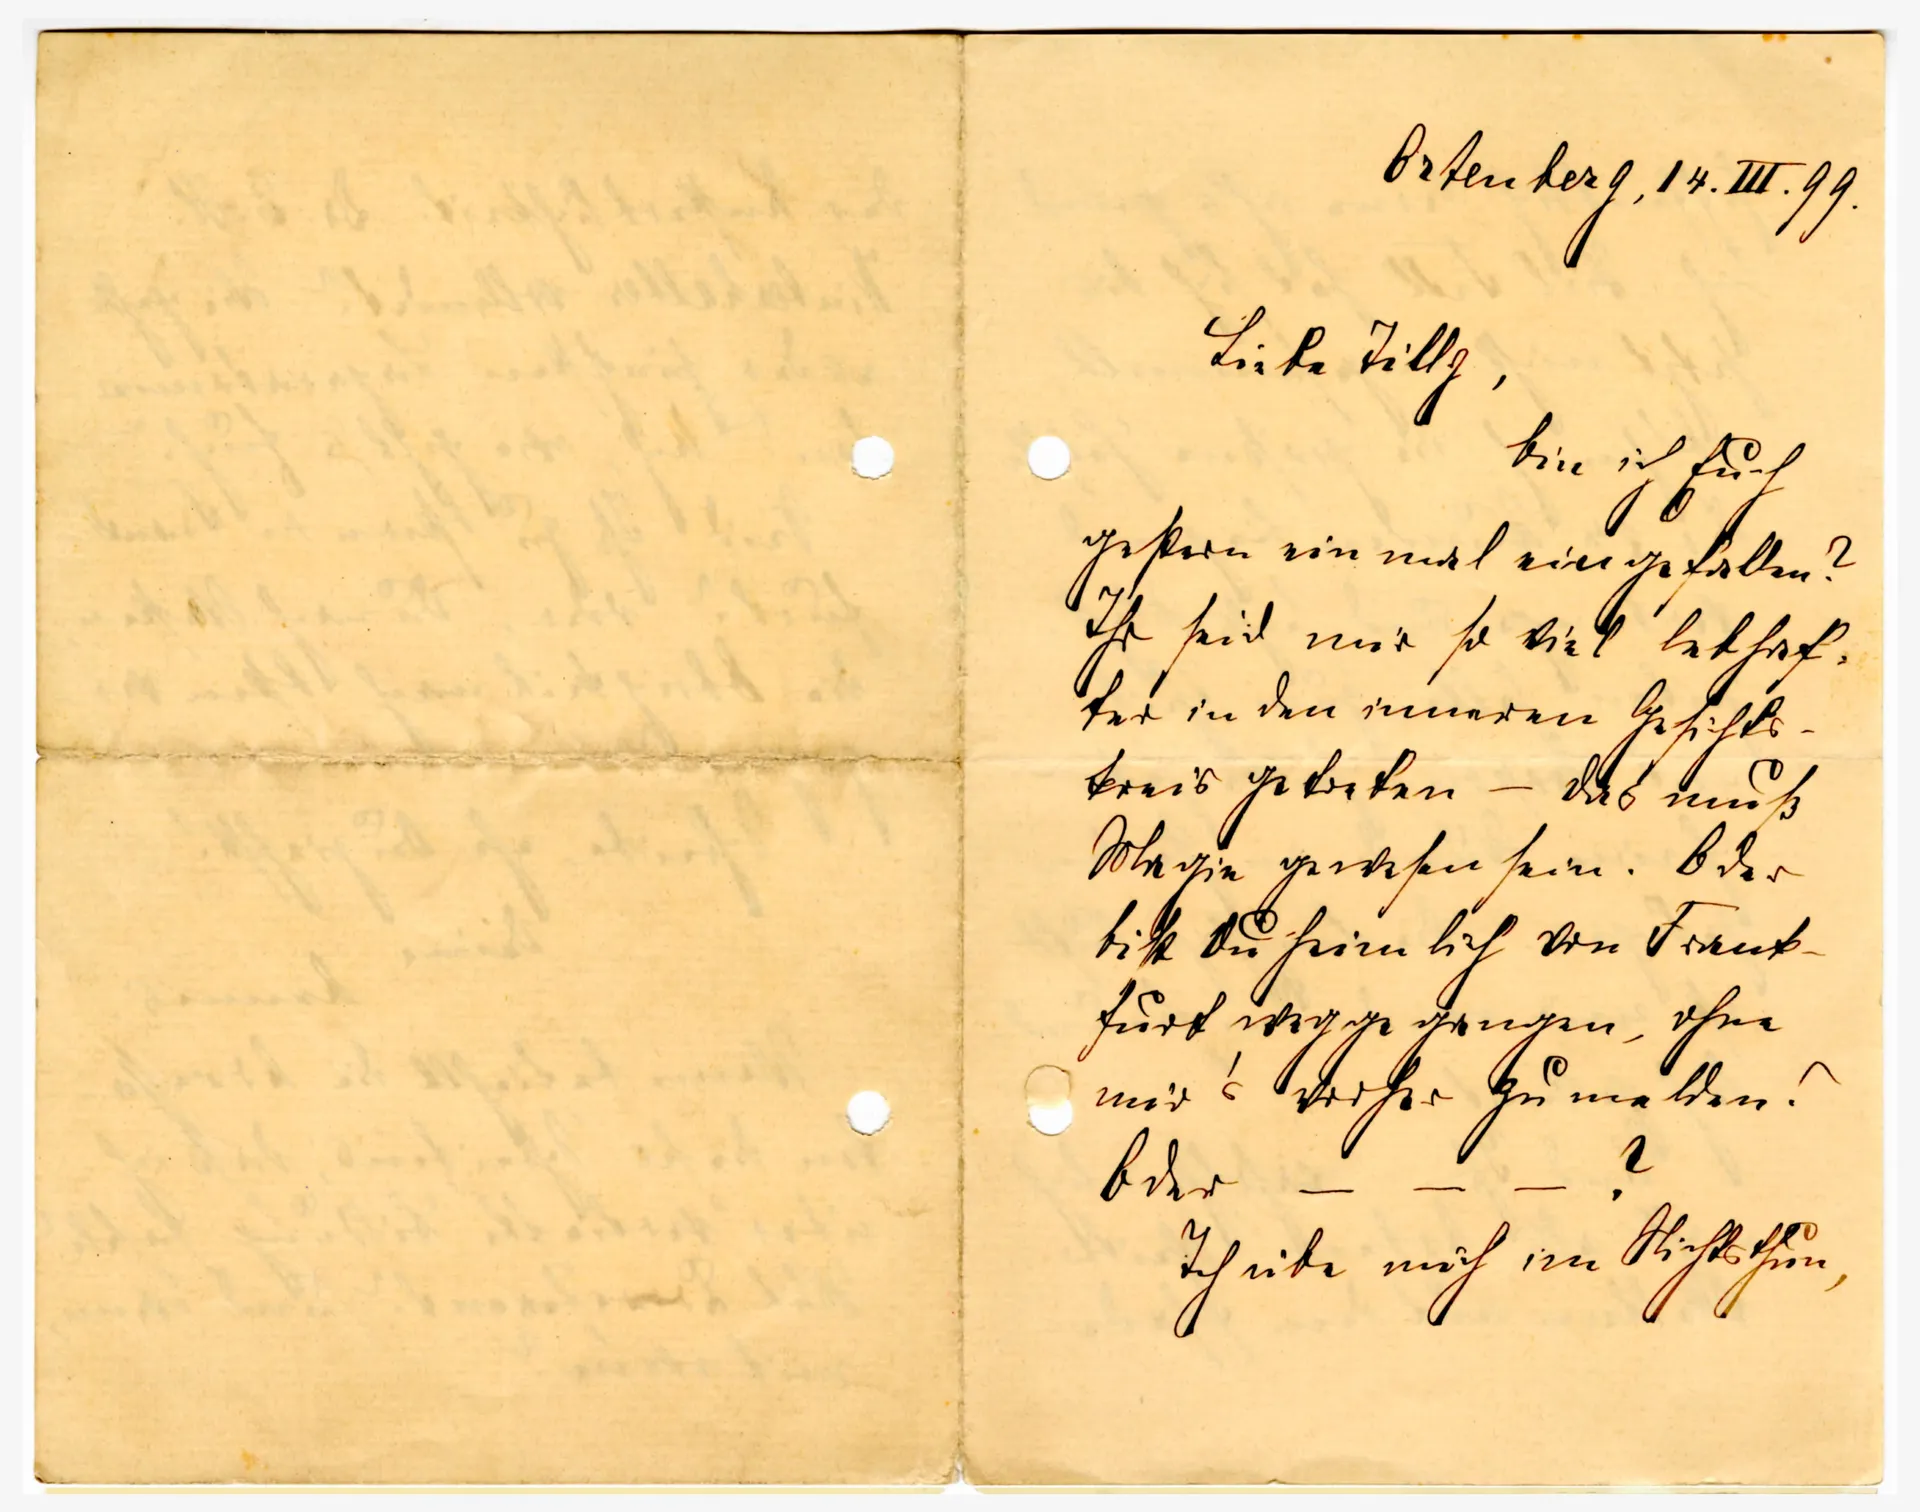 Ortenberg, 14. III. 99.
Liebe Tilly,
bin ich Euch
gestern einmal eingefallen?
Ihr seid mir so viel lebhaf-
ter in den inneren Gesichts-
kreis getreten — das muß
Magie gewesen sein. Oder
bist Du heimlich von Frank-
furt weggegangen, ohne
mir's vorher zu melden?
Oder — — — ?
Ich übe mich im Nichtsthun,